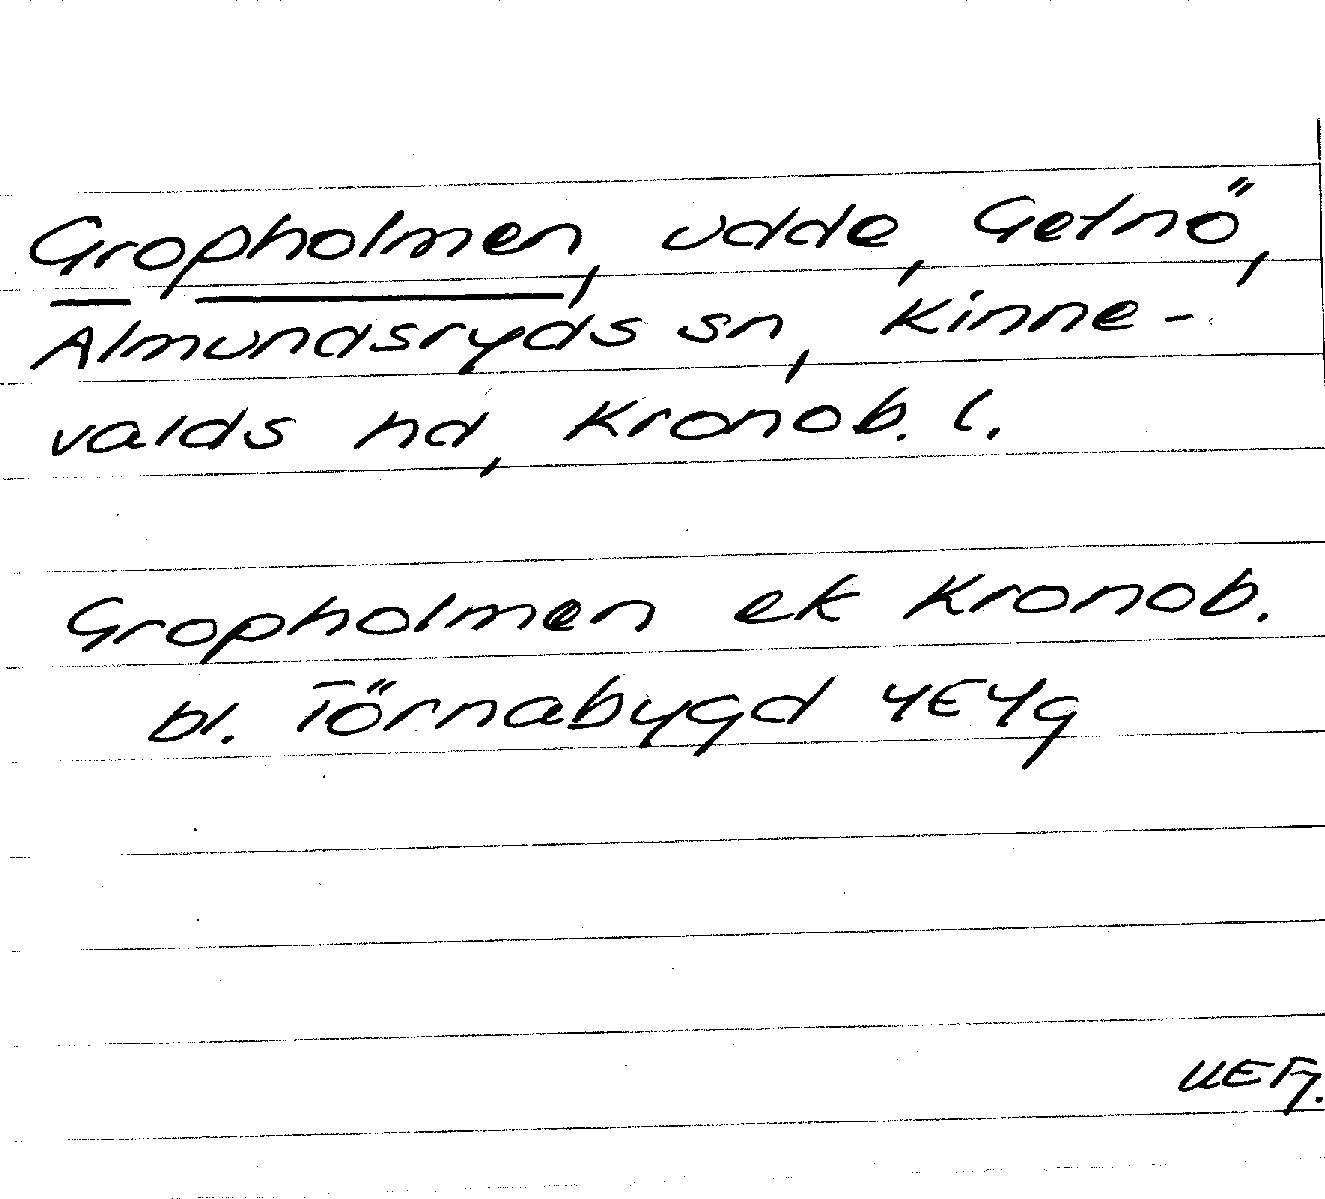 Gropholmen, udde, Getnö,
Almundsryds sn, Kinne-
valds hd, Kronob. l.
Gropholmen ek Kronob.
bl. Törnabygd 4E4g